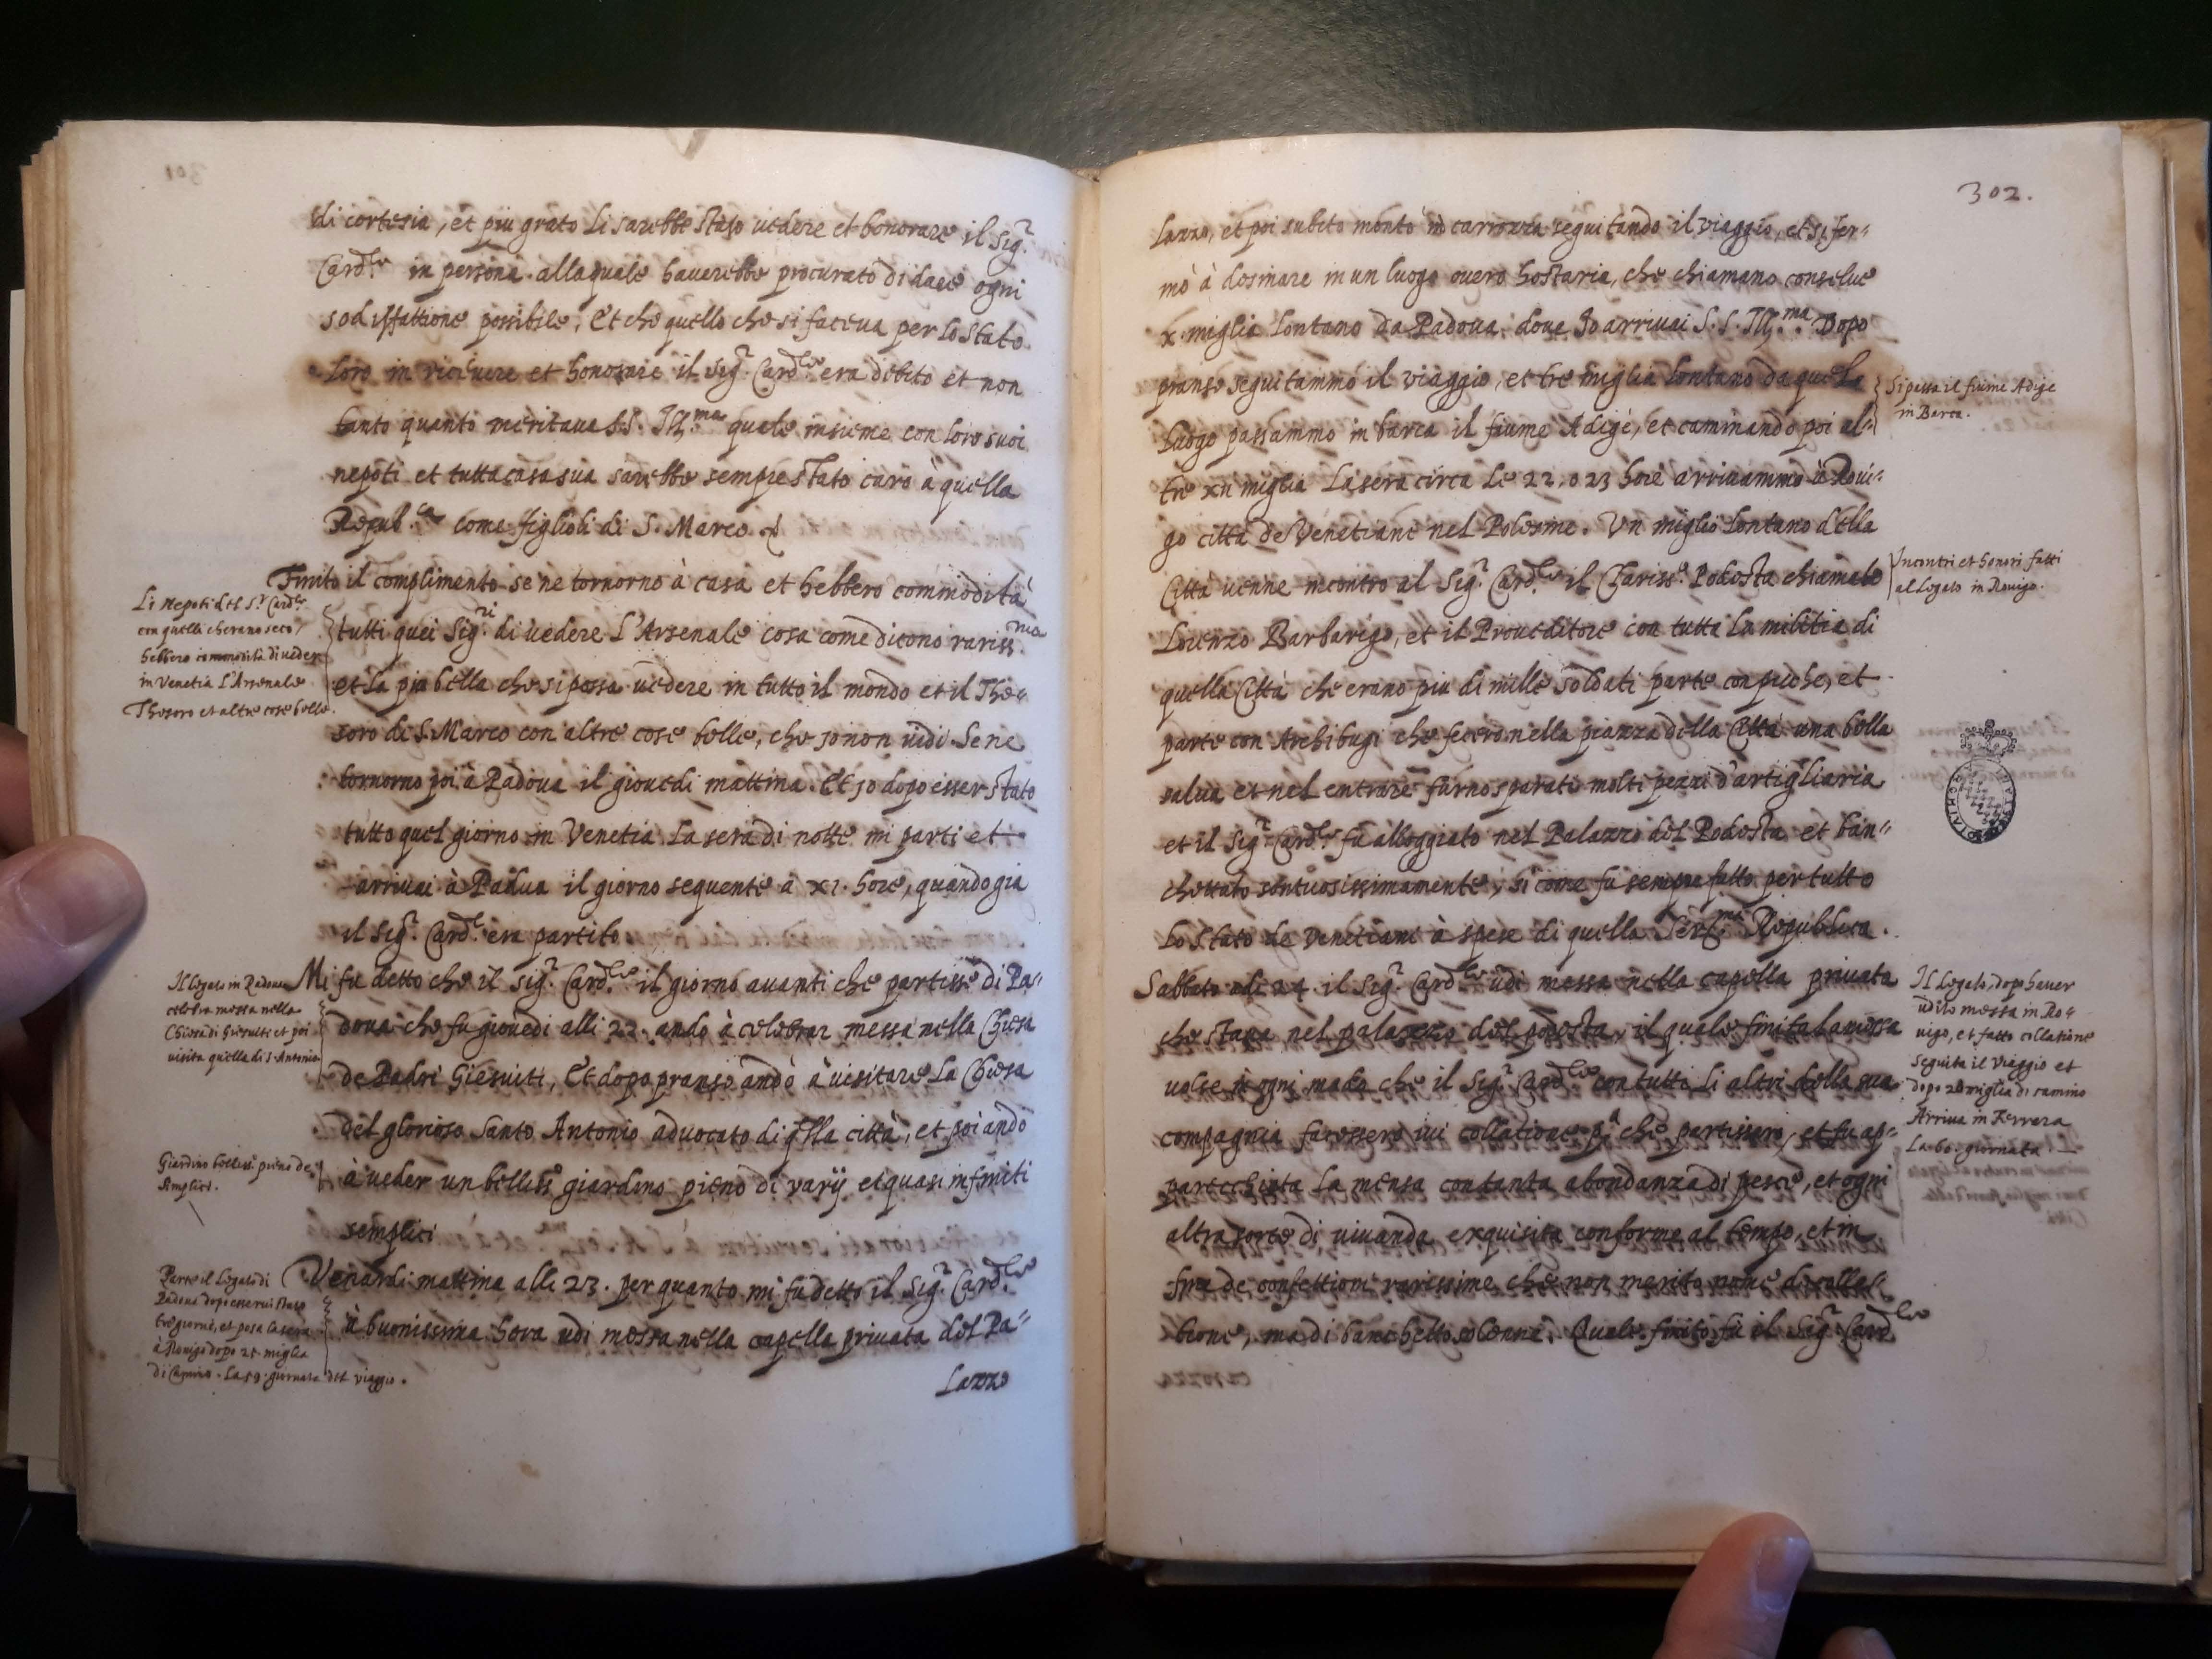 di cortesia, et piu grato li sarebbe stato uedere et honorare il Sig.r
Card.le in persona. allaquale hauerebbe procurato di dare ogni
sodisfattione possibile, Et che quello che si faceua per lo stato
loro in riceuere et honorare il Sig.r Card.le era debito et non
tanto quanto meritaua S.S. Ill.ma quale insieme con loro suoi
nepoti et tutta casa sua sarebbe sempre stato caro à quella
Repub.ca come figlioli di S. Marco.
Finito il complimento se ne tornorno à casa et hebbero commodità
tutti quei Sig.ri di uedere l'Arsenale cosa come dicono rariss.ma
et la piu bella che si possa uedere in tutto il mondo et il The=
soro di S. Marco con altre cose belle, che io non uidi. Se ne
tornorno poi à Padoua il giouedi mattina. Et io dopo esser stato
tutto quel giorno in Venetia la sera di notte mi parti et
arriuai à Padua il giorno sequente à XI. hore, quando gia
il Sig.r Card.le era partito
Mi fu detto che il Sig.r Card.le il giorno auanti che partisse di Pa=
doua che fu giouedi alli 22. ando à celebrar messa nella Chiesa
de Padri Giesuiti, Et dopo pranso andò à uisitare la Chiesa
del glorioso Santo Antonio aduocato di q.lla città, et poi andò
à ueder un belliss.o giardino pieno di varij et quasi infiniti
semplici
Venardi mattina alli 23. per quanto mi fu detto il Sig.r Card.le
à buonissima hora udi messa nella capella priuata del Pa=
lazzo
Li Nepoti del S.r Card.le
con quelli cherano seco
hebbero commodità di ueder
in Venetia l'Arsenale
Thesoro et altre cose belle.
Il Legato in Padoua
celebra messa nella
Chiesa di Giesuiti et poi
visita quella di S. Antonio
Giardino belliss.o pieno de
simplici.
Parte il Legato di
Padoua dopo esserui stato
tre giorni, et posa la sera
à Rouigo dopo 25 miglia
di Camino. La 59. giornata del viaggio.
302.
lazzo, et poi subito montò in carrozza seguitando il viaggio, et si fer=
mò à desinare in un luogo ouero hostaria, che chiamano conselue
x. miglia lontano da Padoua. doue Io arriuai S.S. Ill.ma Dopo
pranso seguitammo il viaggio, et tre miglia lontano da quello
luogo passammo in barca il fiume Adige, et caminando poi al=
tre xii miglia la sera circa le 22. o 23 hore arriuammo à Roui=
go città de Venetiani nel Polesine. Vn miglio lontano della
Città uenne incontro al Sig.r Card.le il Clariss.o Podesta chiamato
Lorenzo Barbarigo, et il Proueditore con tutta la militia di
quella Città che erano piu di mille soldati parte con piche, et
parte con Archibugi che fecero nella piazza della Città una bella
salua et nel entrare furno sparati molti pezzi d'artigliaria
et il Sig.r Card.le fu alloggiato nel Palazzo del Podesta et ban=
chettato sontuosissimamente, si come fu sempre fatto per tutto
lo Stato de Venetiani à spese di quella Ser.ma Republica.
Sabbato adi 24. il Sig.r Card.le udi messa nella capella priuata
che staua nel palazzo del podesta, il quale finita la messa
uolse in ogni modo che il Sig.r Card.le con tutti li altri della sua
compagnia facessero iui collatione p.a che partissero, et fu ap=
parecchiata la mensa con tanta abondanza di pesci, et ogni
altra sorte di uiuanda exquisita conforme al tempo, et in
fine de confettioni rarissime che non merito nome di colla=
tione, ma di banchetto solenne. Quale finito fu il Sig.r Card.le
Si passa il fiume Adige
in Barca.
Incontri et honori fatti
al Legato in Rouigo.
Il Legato, dopo hauer
udito messa in Ro=
uigo, et fatto collatione
seguita il Viaggio et
dopo 20 miglia di camino
Arriua in Ferrara
La 60. giornata